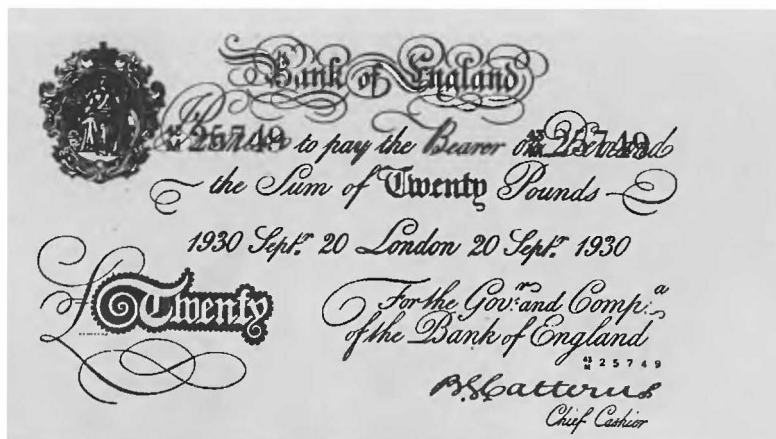 Bank of England
25749 to pay the Bearer on Demand 25749
the Sum of Twenty Pounds
1930 Septr. 20 London 20 Septr. 1930
£ Twenty
For the Govr. and Compa.
of the Bank of England
43/M 25749
B.G. Catterns
Chief Cashier